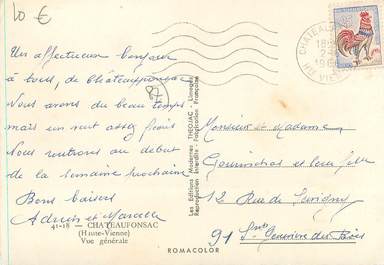 10 €
Un affectueux bonjour
à tous, de Châteauponsac
Nous avons du beau temps
mais un nuit assez frais
Nous rentrons au début
de la semaine prochaine
Bons baisers
Adrien et Marcelle
41-18 - CHATEAUFONSAC
(Haute-Vienne)
Vue générale
87
Les Editions Modernes "THEOJAC" - Limoges
Reproduction Interdite - Fabrication Française
ROMACOLOR
CHATEAU
Hte VIEN
Monsieur et Madame
et leur fille
12 Rue de
91 Ste Geneviève des Bois